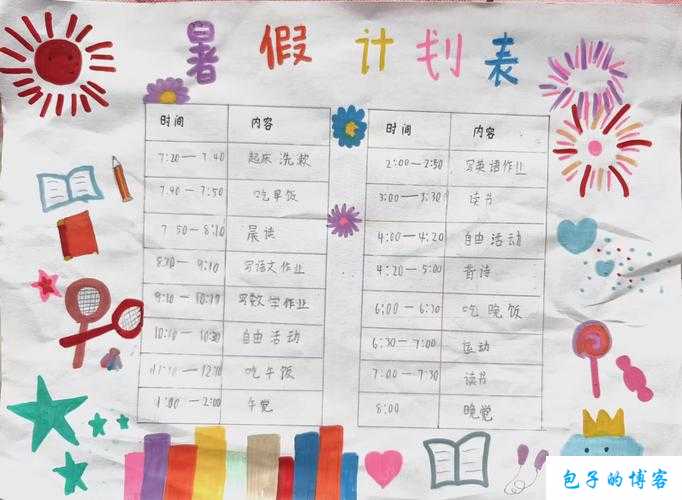 暑假计划表
时间 内容
7:20—7:40 起床洗漱
7:40—7:50 吃早饭
7:50—8:10 晨读
8:10—9:10 写语文作业
9:10— 写数学作业
10:10—10:30 自由活动
吃午饭
1:00—2:00 午觉
时间 内容
2:00—2:50 写英语作业
3:00—3:30 读书
4:00—4:20 自由活动
4:20—5:00 背诗
6:00—6:30 吃晚饭
6:30—7:00 运动
7:00—7:30 读书
8:00 晚觉
包子的博客